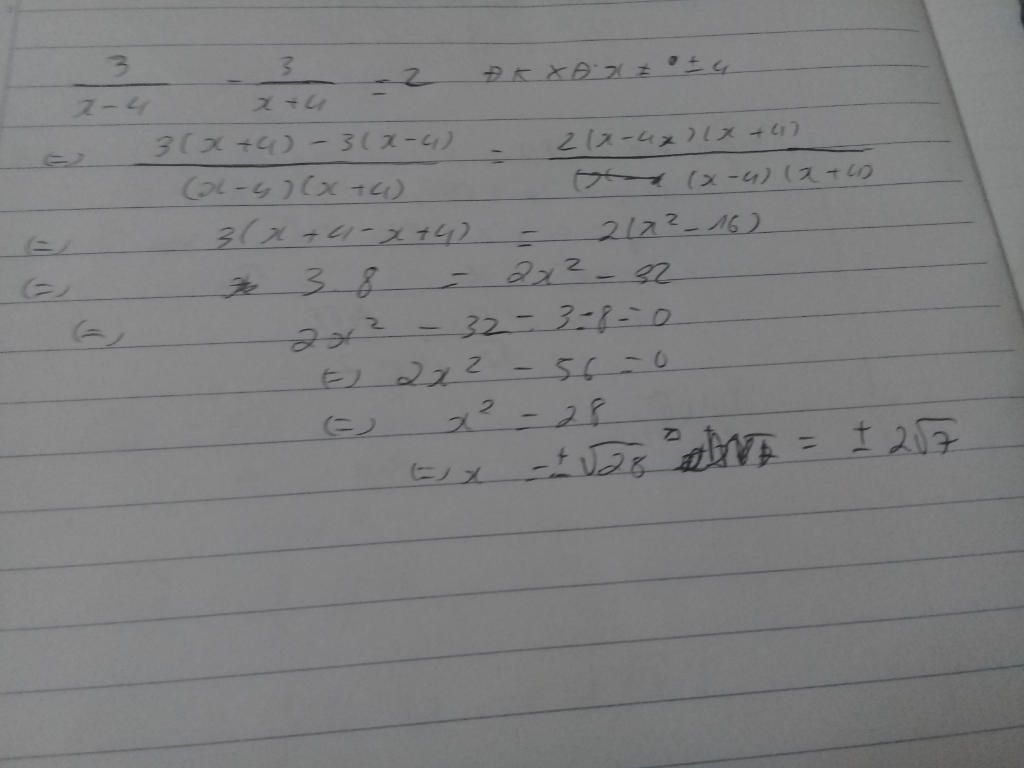 3/(x-4) - 3/(x+4) = 2 ĐKXĐ: x ≠ ±4
(=) (3(x+4) - 3(x-4))/((x-4)(x+4)) = (2(x-4)(x+4))/((x-4)(x+4))
(=) 3(x+4-x+4) = 2(x²-16)
(=) 3.8 = 2x² - 32
(=) 2x² - 32 - 3.8 = 0
(=) 2x² - 56 = 0
(=) x² = 28
(=) x = ±√28 = ±2√7